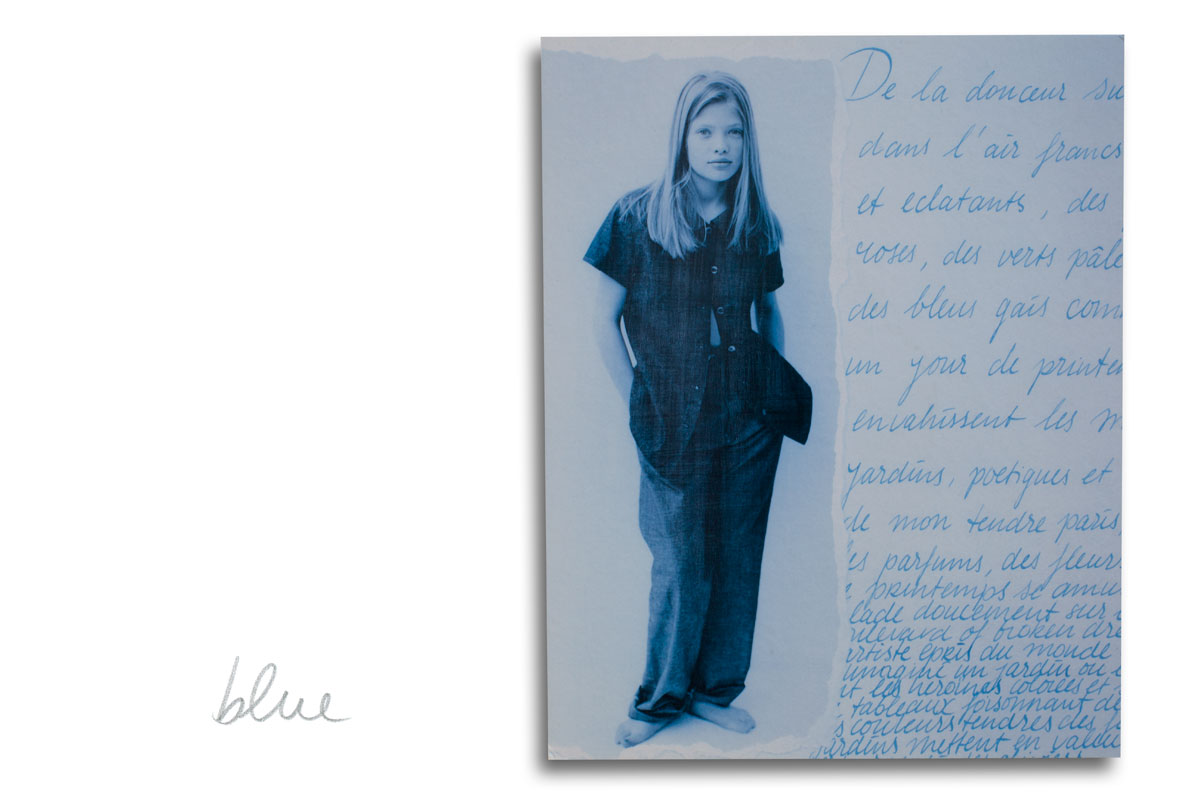 blue
De la douceur su
dans l'air francs
et eclatants, des
roses, des verts pâle
des bleus gais com
un jour de printe
envahissent les m
jardins, poetiques et
de mon tendre paris,
es parfums, des fleurs
printemps se amu
lade doucement sur
ulevard of broken dre
artiste épris du monde
imagine un jardin ou
et les heroines colorées et
tableaux foisonnant de
s couleurs tendres des
jardins mettent en valeu